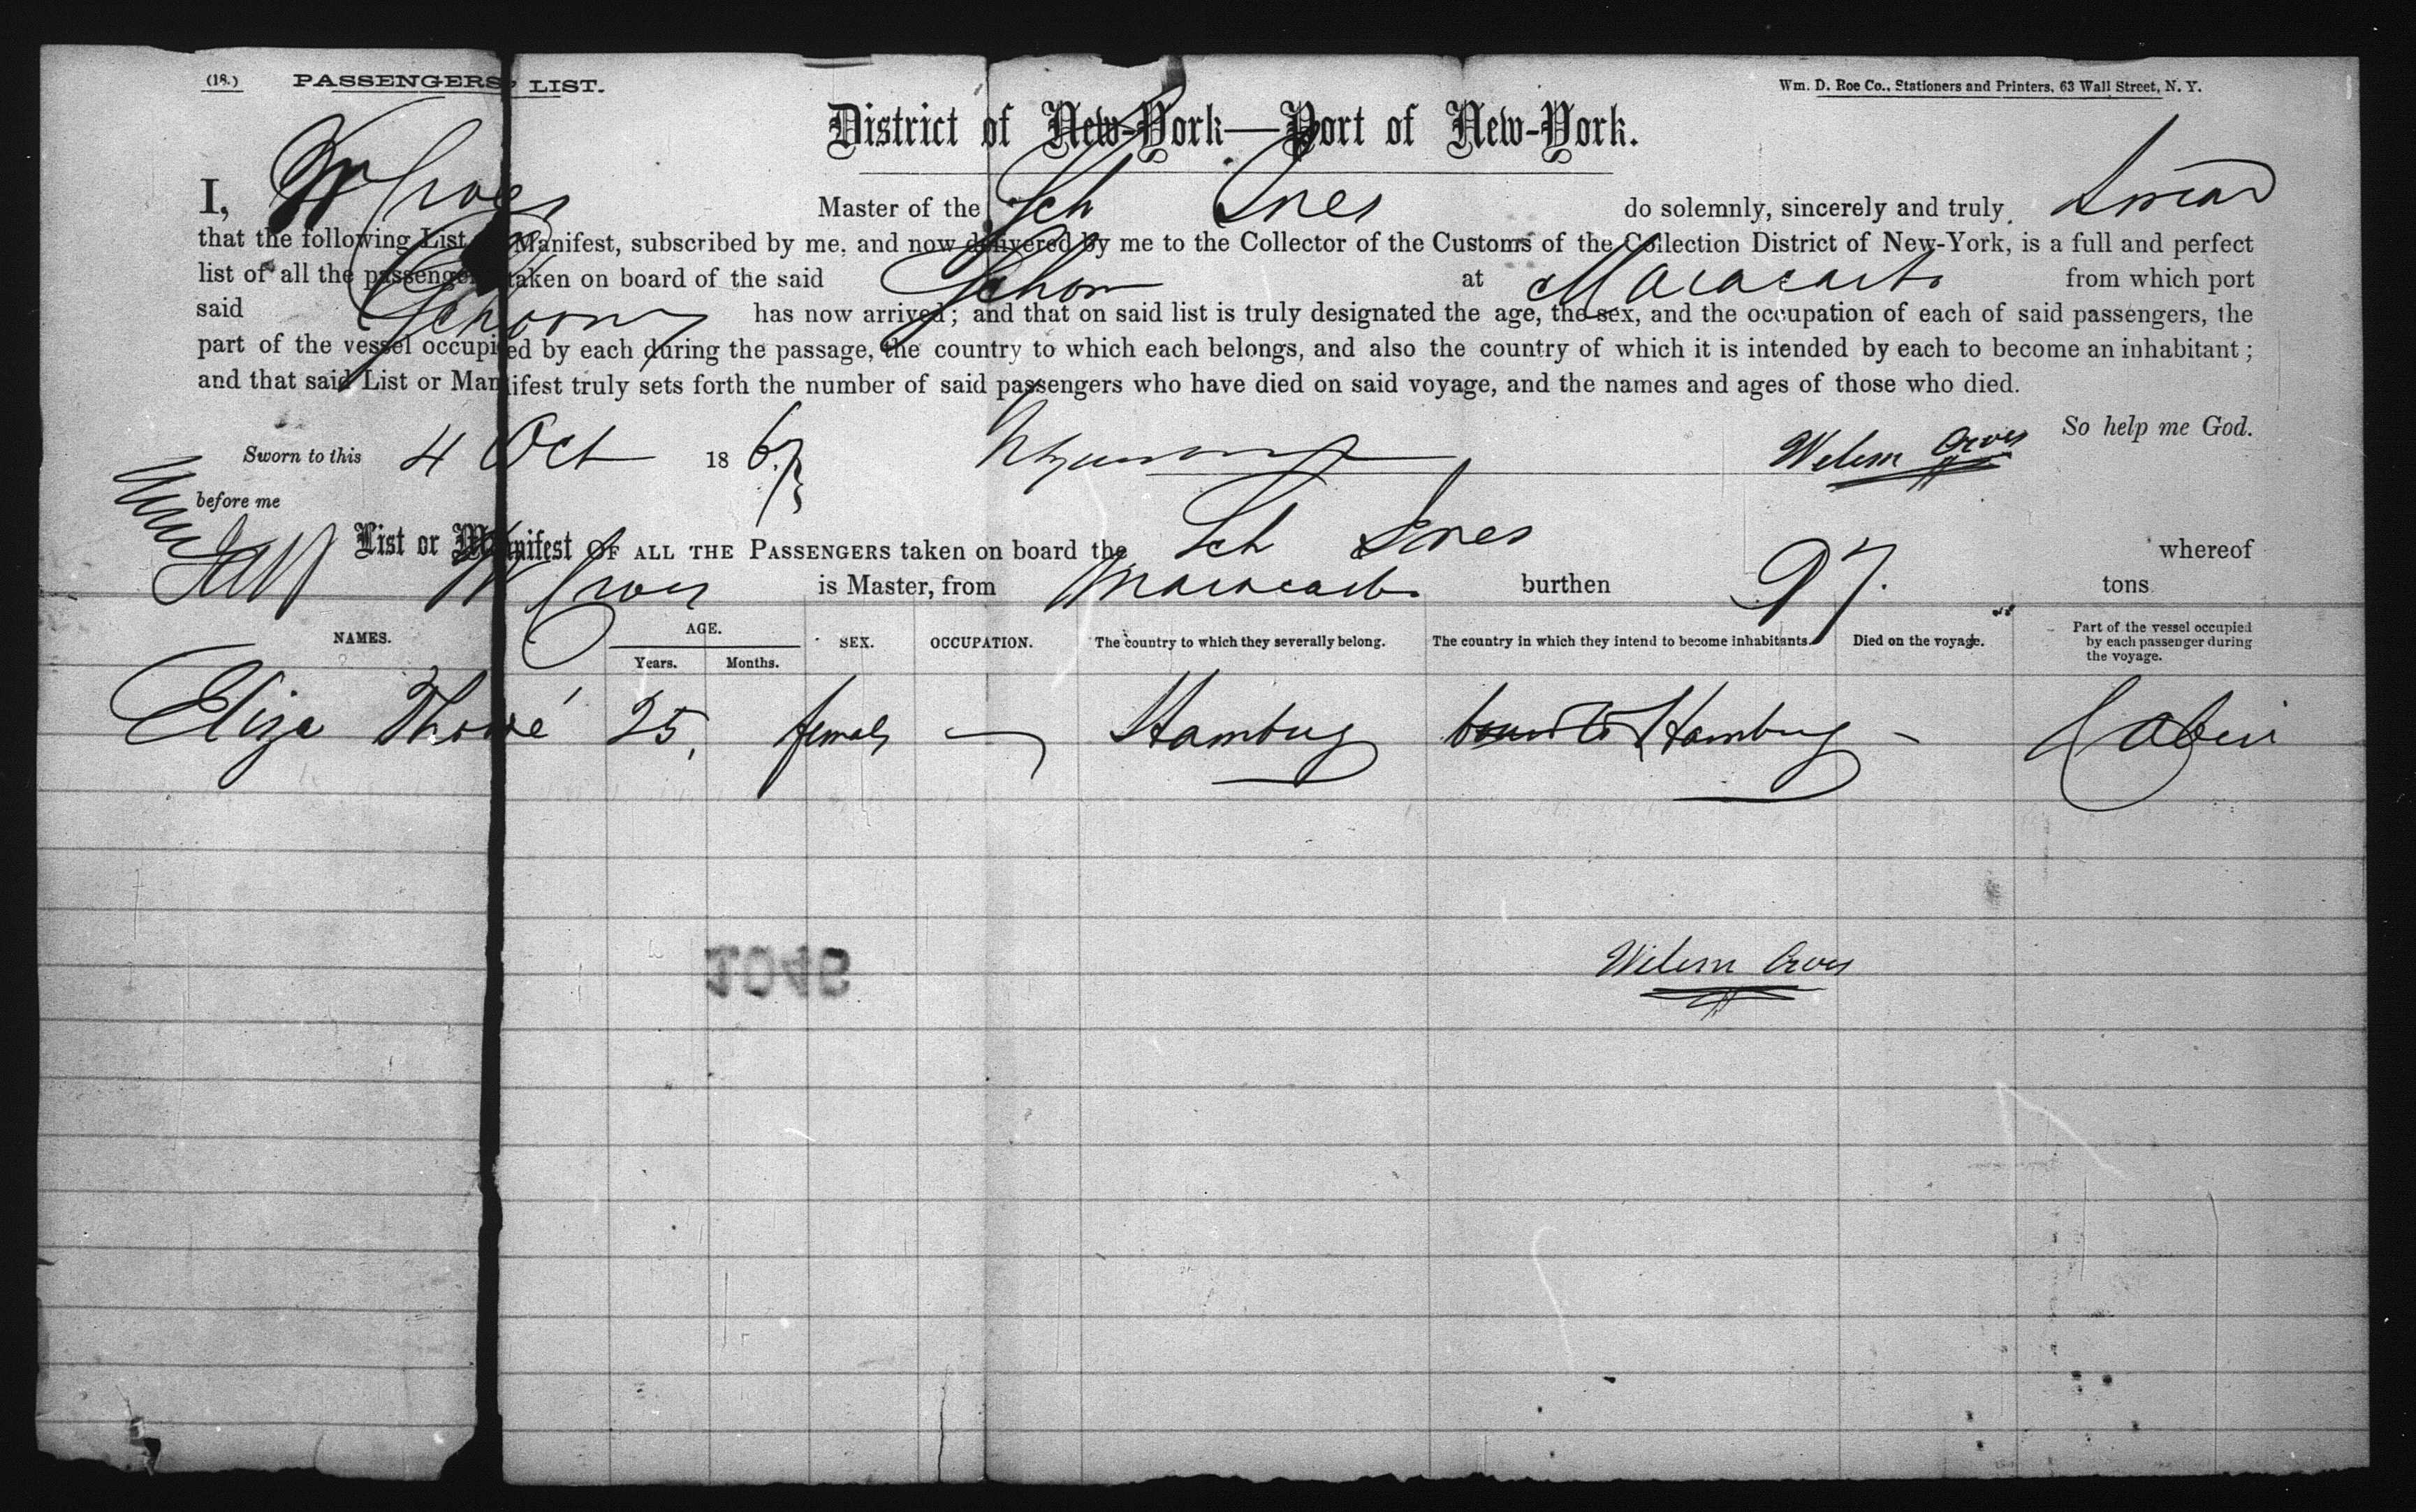 (18.) PASSENGERS' LIST. Wm. D. Roe Co., Stationers and Printers, 63 Wall Street, N. Y.
District of New-York—Port of New-York.
I, W Croes Master of the Sch Ines do solemnly, sincerely and truly swear
that the following List Manifest, subscribed by me, and now delivered by me to the Collector of the Customs of the Collection District of New-York, is a full and perfect
list of all the passengers taken on board of the said Schon at Maracaibo from which port
said Schoon has now arrived; and that on said list is truly designated the age, the sex, and the occupation of each of said passengers, the
part of the vessel occupied by each during the passage, the country to which each belongs, and also the country of which it is intended by each to become an inhabitant;
and that said List or Manifest truly sets forth the number of said passengers who have died on said voyage, and the names and ages of those who died.
So help me God.
Sworn to this 4 Oct 1867 Welem Croes
before me
List or Manifest OF ALL THE PASSENGERS taken on board the Sch Ines whereof
W Croes is Master, from Maracaibo burthen 97. tons
NAMES. AGE. SEX. OCCUPATION. The country to which they severally belong. The country in which they intend to become inhabitants. Died on the voyage. Part of the vessel occupied by each passenger during the voyage.
Years. Months.
Eliza 25, female — Hamburg bound to Hamburg - Cabin
1046
Welem Croes